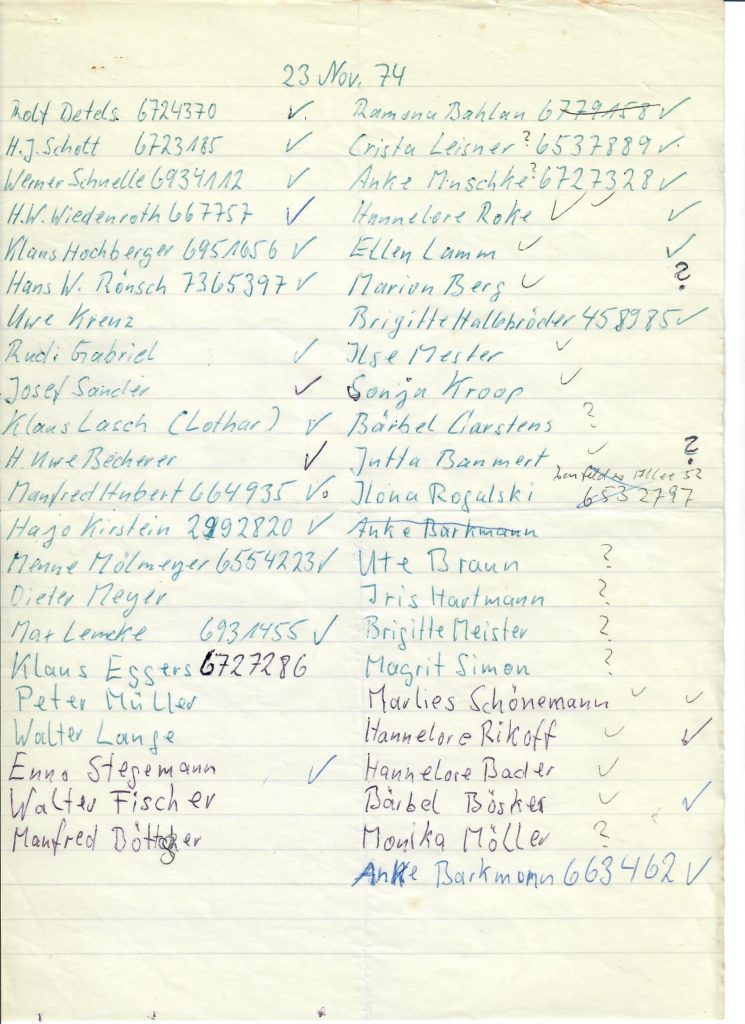 23 Nov. 74
Rolf Detels 6724370 ✓
H.J. Schott 6723185 ✓
Werner Schnelle 6934112 ✓
H.W. Wiedenroth 667757 ✓
Klaus Hochberger 6951656 ✓
Hans W. Rönsch 7365397 ✓
Uwe Krenz
Rudi Gabriel ✓
Josef Sander ✓
Klaus Lasch (Lothar) ✓
H. Uwe Becherer ✓
Manfred Hubert 664935 ✓
Hajo Kirstein 2992820 ✓
Menne Mölmeyer 6554223 ✓
Dieter Meyer
Max Lemcke 6931455 ✓
Klaus Eggers 6727286
Peter Müller
Walter Lange
Enno Stegemann ✓
Walter Fischer
Manfred Böttcher
Ramona Bahlan 6779158 ✓
Crista Leisner ? 6537889 ✓
Anke Muschke ? 6727328 ✓
Hannelore Roke ✓ ✓ ✓
Ellen Lamm ✓ ✓
Marion Berg ✓ ?
Brigitte Halbbröder 458985 ✓
Ilse Mester ✓
Sonja Kroop ✓
Bärbel Carstens ?
Jutta Banmert ✓ ?
Allee 52
Ilona Rogalski 6532797
Anke Barkmann
Ute Braun ?
Iris Hartmann ?
Brigitte Meister ?
Magrit Simon ?
Marlies Schönemann ✓ ✓
Hannelore Rikoff ✓ ✓
Hannelore Bader ✓
Bärbel Bösker ✓ ✓
Monika Möller ?
Anke Barkmann 663462 ✓